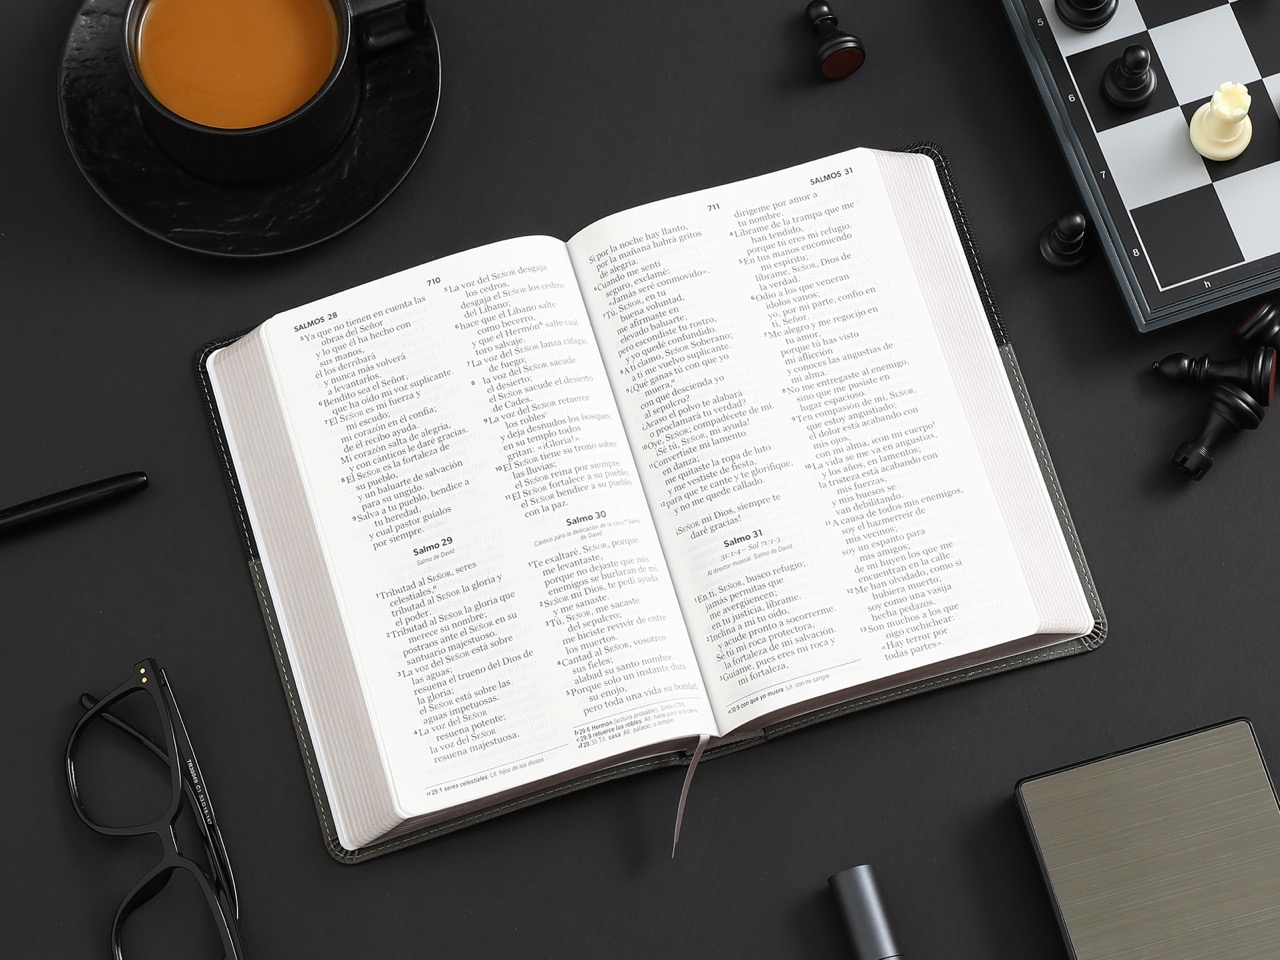 SALMOS 28
710
⁵Ya que no tienen en cuenta las
obras del Señor
y lo que él ha hecho con
sus manos,
él los derribará
y nunca más volverá
a levantarlos.
⁶Bendito sea el Señor,
que ha oído mi voz suplicante.
⁷El Señor es mi fuerza y
mi escudo;
mi corazón en él confía;
de él recibo ayuda.
Mi corazón salta de alegría,
y con cánticos le daré gracias.
⁸El Señor es la fortaleza de
su pueblo,
y un baluarte de salvación
para su ungido.
⁹Salva a tu pueblo, bendice a
tu heredad,
y cual pastor guíalos
por siempre.
Salmo 29
Salmo de David.
¹Tributad al Señor, seres
celestiales,ᵃ
tributad al Señor la gloria y
el poder.
²Tributad al Señor la gloria que
merece su nombre;
postraos ante el Señor en su
santuario majestuoso.
³La voz del Señor está sobre
las aguas;
resuena el trueno del Dios de
la gloria;
el Señor está sobre las
aguas impetuosas.
⁴La voz del Señor
resuena potente;
la voz del Señor
resuena majestuosa.
ᵃ29:1 seres celestiales. Lit. hijos de los dioses.
⁵La voz del Señor desgaja
los cedros,
desgaja el Señor los cedros
del Líbano;
⁶hace que el Líbano salte
como becerro,
y que el Hermónᵇ salte cual
toro salvaje.
⁷La voz del Señor lanza ráfagas
de fuego;
⁸la voz del Señor sacude
el desierto;
el Señor sacude el desierto
de Cades.
⁹La voz del Señor retuerce
los roblesᶜ
y deja desnudos los bosques;
en su templo todos
gritan: «¡Gloria!»
¹⁰El Señor tiene su trono sobre
las lluvias;
el Señor reina por siempre.
¹¹El Señor fortalece a su pueblo;
el Señor bendice a su pueblo
con la paz.
Salmo 30
Cántico para la dedicación de la casa.ᵈ Salmo
de David.
¹Te exaltaré, Señor, porque
me levantaste,
porque no dejaste que mis
enemigos se burlaran de mí.
²Señor mi Dios, te pedí ayuda
y me sanaste.
³Tú, Señor, me sacaste
del sepulcro;
me hiciste revivir de entre
los muertos.
⁴Cantad al Señor, vosotros
sus fieles;
alabad su santo nombre.
⁵Porque solo un instante dura
su enojo,
pero toda una vida su bondad.
ᵇ29:6 Hermón (lectura probable); Sirión (TM).
ᶜ29:9 retuerce los robles. Alt. hace parir a la cierva.
ᵈ29:30 Tít. casa. Alt. palacio, o templo.
711
SALMOS 31
Si por la noche hay llanto,
por la mañana habrá gritos
de alegría.
⁶Cuando me sentí
seguro, exclamé:
«Jamás seré conmovido».
⁷Tú, Señor, en tu
buena voluntad,
me afirmaste en
elevado baluarte;
pero escondiste tu rostro,
y yo quedé confundido.
⁸A ti clamo, Señor Soberano;
a ti me vuelvo suplicante.
⁹¿Qué ganas tú con que yo
muera,ᵉ
con que descienda yo
al sepulcro?
¿Acaso el polvo te alabará
o proclamará tu verdad?
¹⁰Oye, Señor; compadécete de mí.
¡Sé tú, Señor, mi ayuda!
¹¹Convertiste mi lamento
en danza;
me quitaste la ropa de luto
y me vestiste de fiesta,
¹²para que te cante y te glorifique,
y no me quede callado.
¡Señor mi Dios, siempre te
daré gracias!
Salmo 31
31:1-4 – Sal 71:1-3
Al director musical. Salmo de David.
¹En ti, Señor, busco refugio;
jamás permitas que
me avergüencen;
en tu justicia, líbrame.
²Inclina a mí tu oído,
y acude pronto a socorrerme.
Sé tú mi roca protectora,
la fortaleza de mi salvación.
³Guíame, pues eres mi roca y
mi fortaleza,
ᵉ30:9 con que yo muera. Lit. con mi sangre.
dirígeme por amor a
tu nombre.
⁴Líbrame de la trampa que me
han tendido,
porque tú eres mi refugio.
⁵En tus manos encomiendo
mi espíritu;
líbrame, Señor, Dios de
la verdad.
⁶Odio a los que veneran
ídolos vanos;
yo, por mi parte, confío en
ti, Señor.
⁷Me alegro y me regocijo en
tu amor,
porque tú has visto
mi aflicción
y conoces las angustias de
mi alma.
⁸No me entregaste al enemigo,
sino que me pusiste en
lugar espacioso.
⁹Ten compasión de mí, Señor,
que estoy angustiado;
el dolor está acabando con
mis ojos,
con mi alma, ¡con mi cuerpo!
¹⁰La vida se me va en angustias,
y los años, en lamentos;
la tristeza está acabando con
mis fuerzas,
y mis huesos se
van debilitando.
¹¹A causa de todos mis enemigos,
soy el hazmerreír de
mis vecinos;
soy un espanto para
mis amigos;
de mí huyen los que me
encuentran en la calle.
¹²Me han olvidado, como si
hubiera muerto;
soy como una vasija
hecha pedazos.
¹³Son muchos a los que
oigo cuchichear:
«Hay terror por
todas partes».
5
6
7
8
h